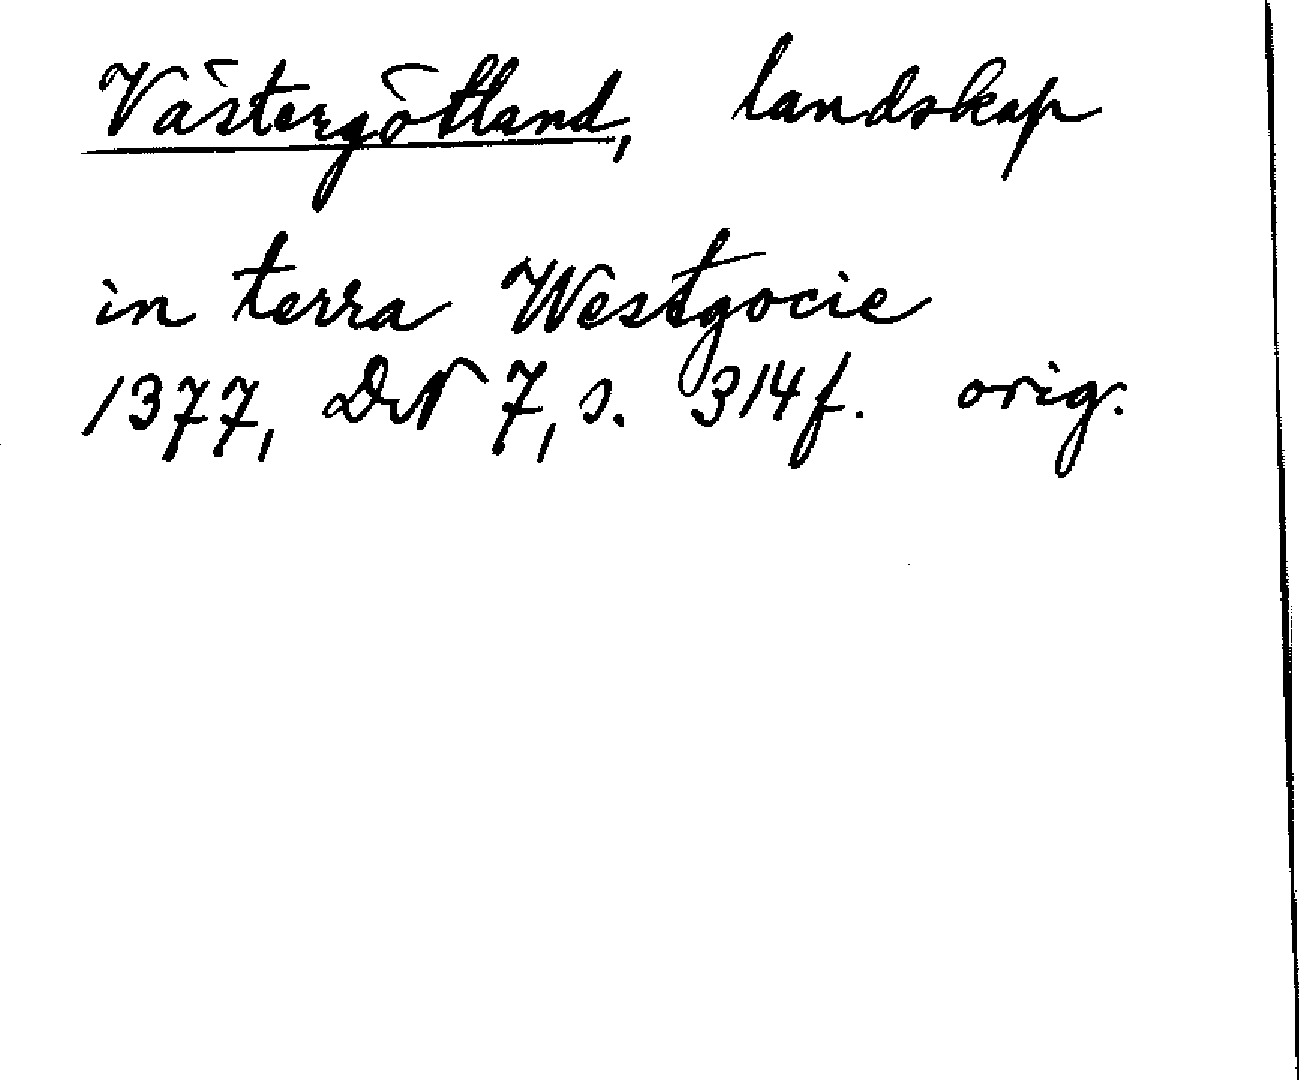 Västergötland, landskap
in terra Westgocie
1377, DN 7, s. 314f. orig.